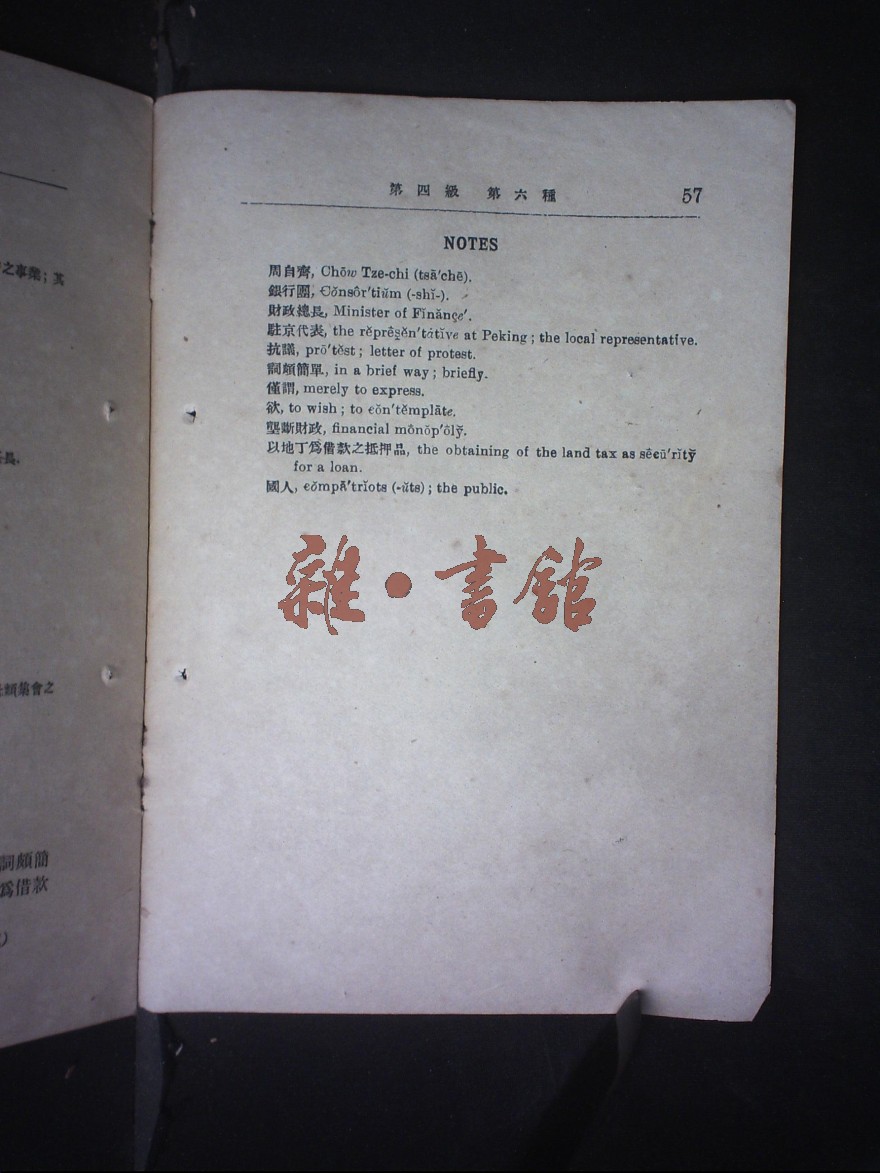 之事業；其
長.
頗集會之
詞頗簡
爲借款
第四級 第六種 57
NOTES
周自齊, Chōw Tze-chi (tsā′chē).
銀行團, Cŏnsôr′tiŭm (-shĭ-).
財政總長, Minister of Fĭnănçe′.
駐京代表, the rĕprê̱sĕn′tȧtĭve at Peking; the local representatĭve.
抗議, prō′tĕst; letter of protest.
詞頗簡單, in a brief way; briefly.
僅謂, merely to express.
欲, to wish; to cŏn′tĕmplāte.
壟斷財政, financial mônŏp′ôly̆.
以地丁爲借款之抵押品, the obtaining of the land tax as sêcū′rĭty̆
for a loan.
國人, cŏmpā′trĭots (-ŭts); the public.
雜·書館